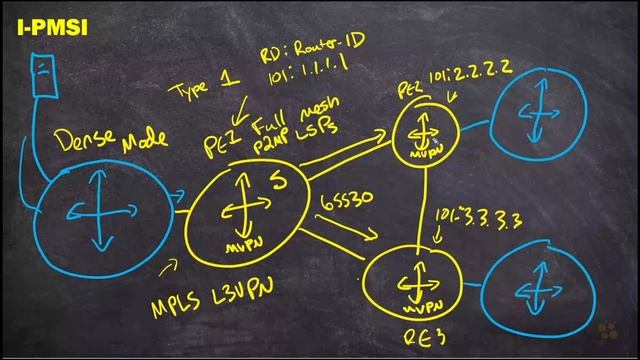 I-PMSI
RD: Router-ID
101: 1.1.1.1
Type 1
PE2 101: 2.2.2.2
Dense Mode
PE1 Full mesh
P2MP LSPs
MVPN
S
MVPN
65530
101: 3.3.3.3
MPLS L3VPN
MVPN
PE3